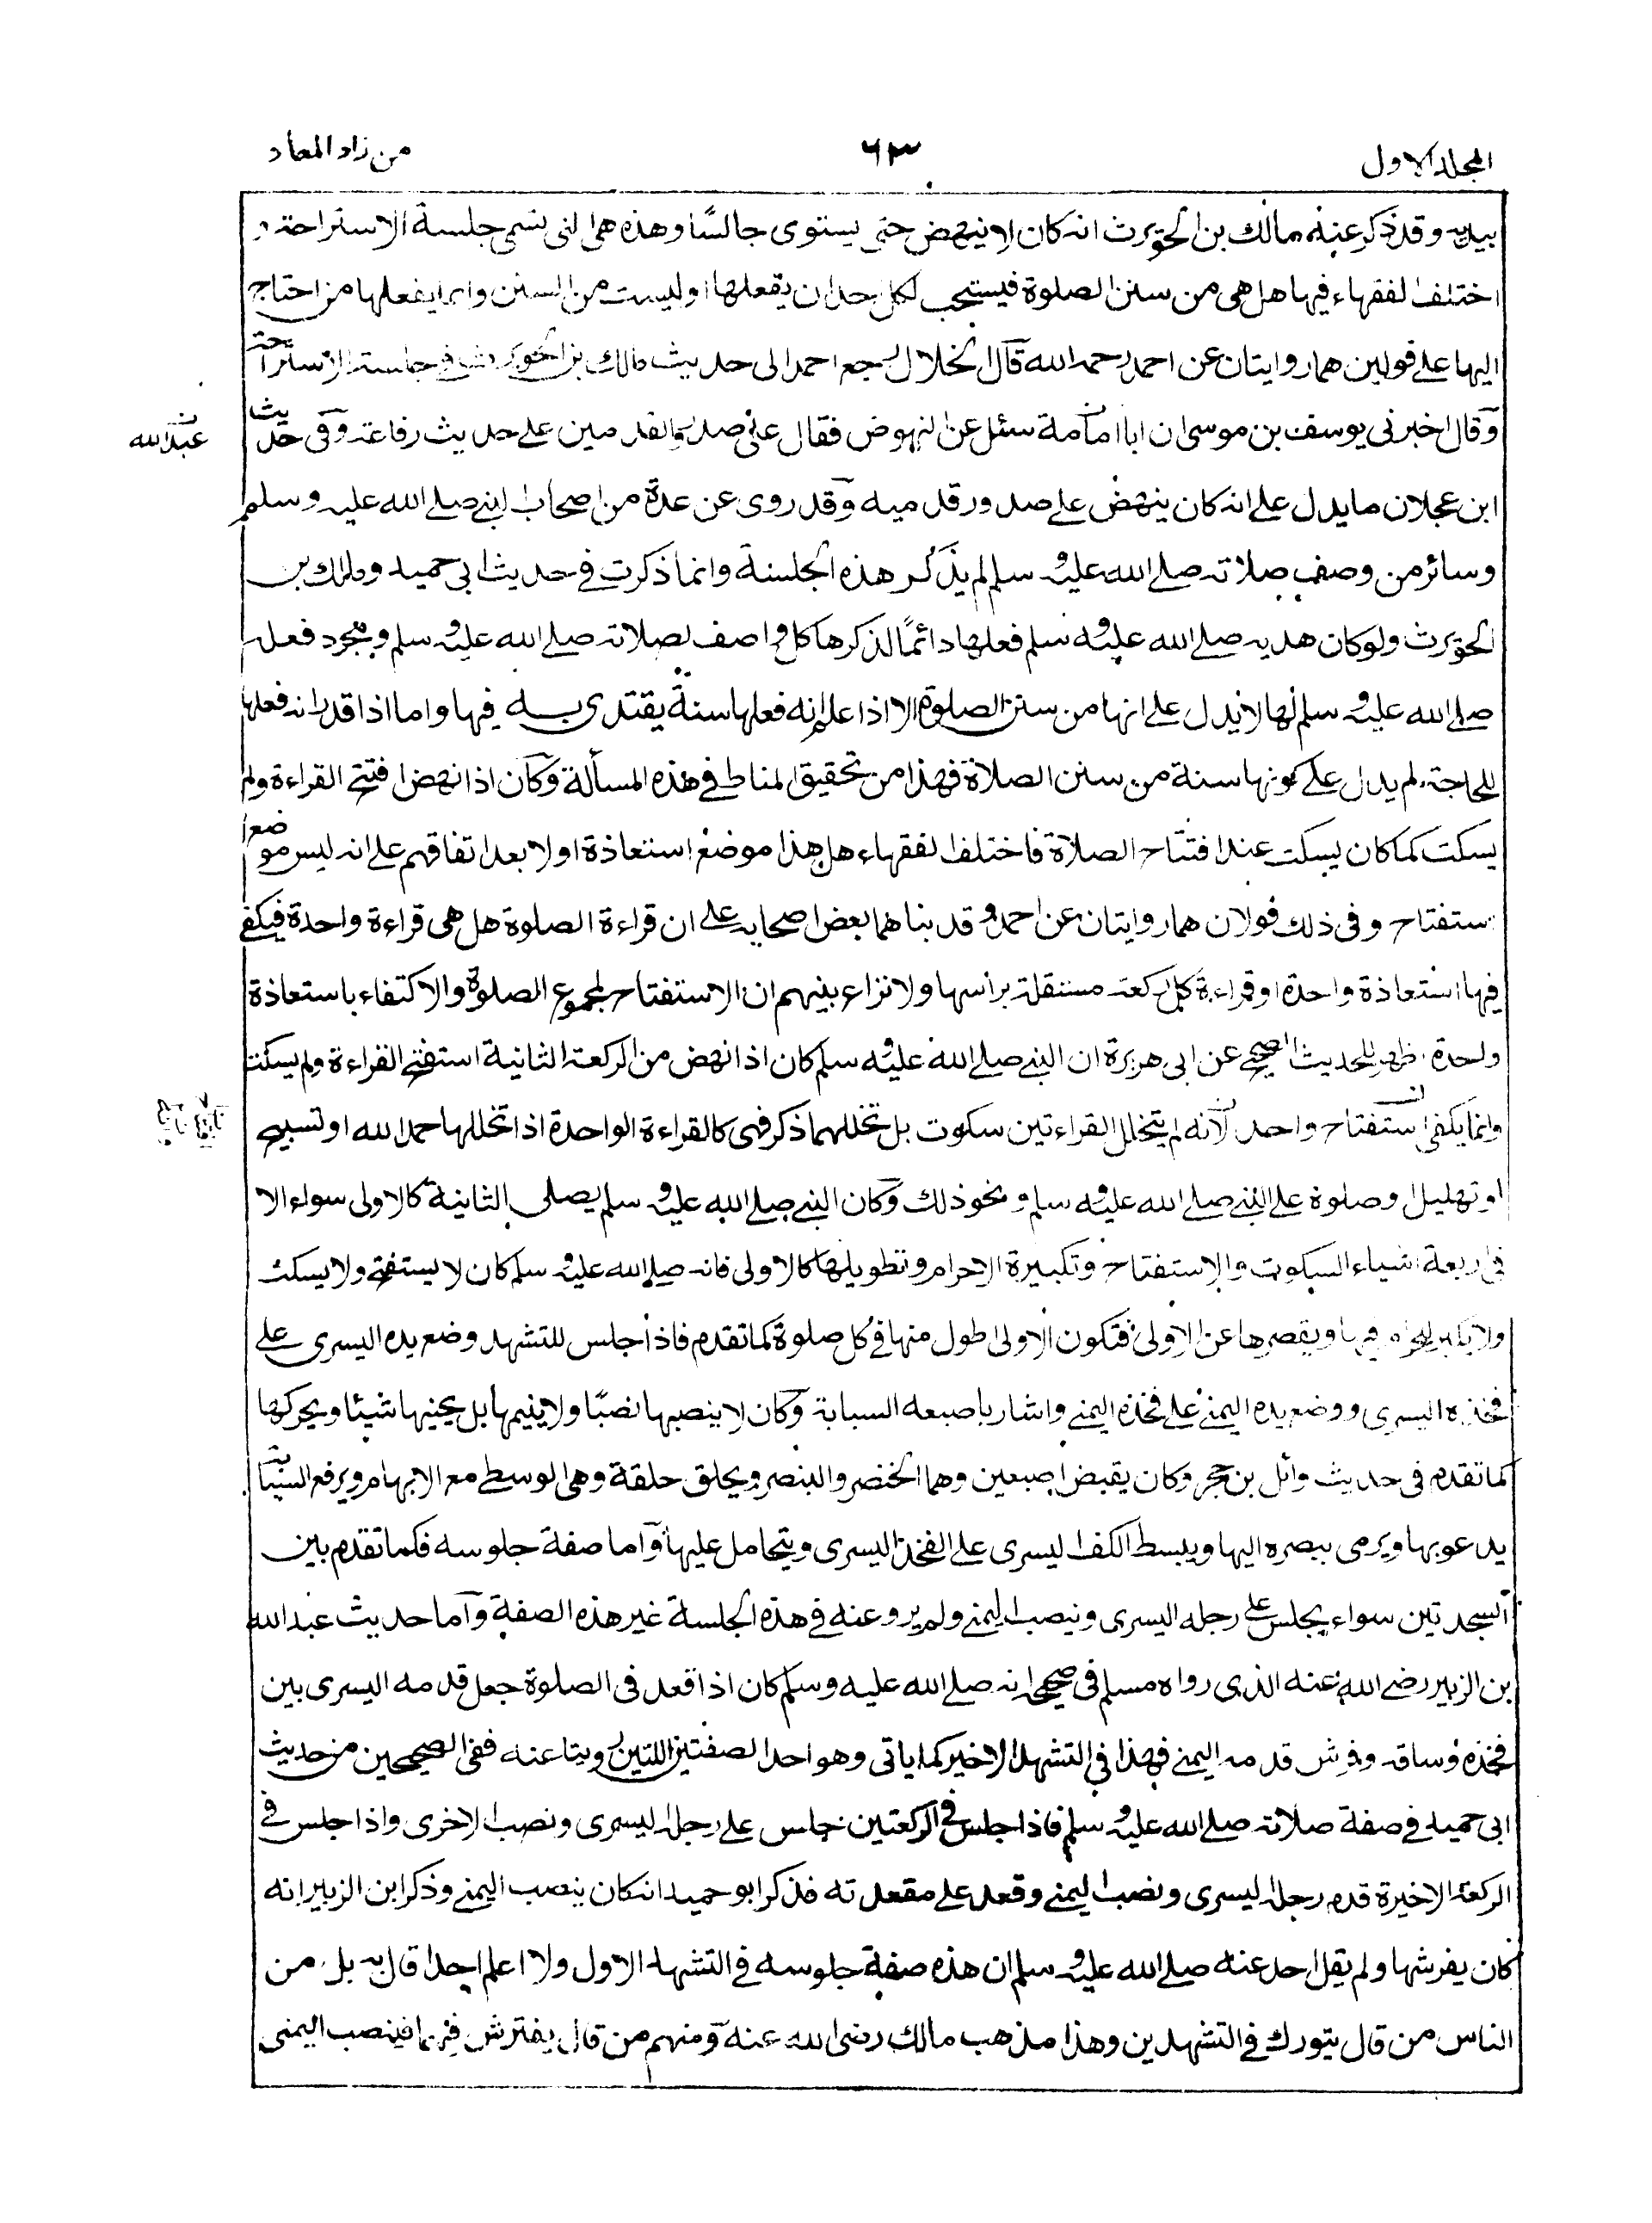 المجلد الاول
٦٣
من زاد المعاد
بيديه وقد ذكر عنه مالك بن الحويرث انه كان لا ينهض حتى يستوى جالسًا وهذه هى التى تسمى جلسة الاستراحة و
اختلف الفقهاء فيها هل هى من سنن الصلوة فيستحب لكل احد ان يفعلها او ليست من السنن وانما يفعلها من احتاج
اليها على قولين هما روايتان عن احمد رحمه الله قال الخلال رجع احمد الى حديث مالك بن الحويرث فى جلسة الاستراحة
وقال اخبرنى يوسف بن موسى ان ابا امامة سئل عن النهوض فقال على صدور القدمين على حديث رفاعة وفى حديث
عبد الله
ابن عجلان ما يدل على انه كان ينهض على صدور قدميه وقد روى عن عدة من اصحاب النبى صلى الله عليه وسلم
وسائر من وصف صلاته صلى الله عليه وسلم لم يذكر هذه الجلسة وانما ذكرت فى حديث ابى حميد ومالك بن
الحويرث ولو كان هديه صلى الله عليه وسلم فعلها دائمًا لذكرها كل واصف لصلاته صلى الله عليه وسلم ومجرد فعله
صلى الله عليه وسلم لها لا يدل على انها من سنن الصلوة الا اذا علم انه فعلها سنة يقتدى به فيها واما اذا قدر انه فعلها
للحاجة لم يدل على كونها سنة من سنن الصلاة فهذا من تحقيق المناط فى هذه المسألة وكان اذا نهض افتتح القراءة ولم
يسكت كما كان يسكت عند افتتاح الصلاة فاختلف الفقهاء هل هذا موضع استعاذة او لا بعد اتفاقهم على انه ليس موضع
استفتاح وفى ذلك قولان هما روايتان عن احمد وقد بناهما بعض اصحابه على ان قراءة الصلوة هل هى قراءة واحدة فيكفى
فيها استعاذة واحدة او قراءة كل ركعة مستقلة برأسها ولا نزاع بينهم ان الاستفتاح لمجموع الصلوة والاكتفاء باستعاذة
واحدة اظهر للحديث الصحيح عن ابى هريرة ان النبى صلى الله عليه وسلم كان اذا نهض من الركعة الثانية استفتح القراءة ولم يسكت
وانما يكفى استفتاح واحد لانه لم يتخلل القراءتين سكوت بل تخللهما ذكر فهى كالقراءة الواحدة اذا تخللها حمد الله او تسبيح
او تهليل او صلوة على النبى صلى الله عليه وسلم ونحو ذلك وكان النبى صلى الله عليه وسلم يصلى الثانية كالاولى سواء الا
فى اربعة اشياء السكوت والاستفتاح وتكبيرة الاحرام وتطويلها كالاولى فانه صلى الله عليه وسلم كان لا يستفتح ولا يسكت
ولا يكبر للاحرام فيها ويقصرها عن الاولى فتكون الاولى اطول منها فى كل صلوة كما تقدم فاذا جلس للتشهد وضع يده اليسرى على
فخذه اليسرى ووضع يده اليمنى على فخذه اليمنى واشار باصبعه السبابة وكان لا ينصبها نصبًا ولا ينيمها بل يحنيها شيئا ويحركها
كما تقدم فى حديث وائل بن حجر وكان يقبض اصبعين وهما الخنصر والبنصر ويحلق حلقة وهى الوسطى مع الابهام ويرفع السبابة
يدعو بها ويرمى ببصره اليها ويبسط الكف اليسرى على الفخذ اليسرى ويتحامل عليها واما صفة جلوسه فكما تقدم بين
السجدتين سواء يجلس على رجله اليسرى وينصب اليمنى ولم يرو عنه فى هذه الجلسة غير هذه الصفة واما حديث عبد الله
بن الزبير رضى الله عنه الذى رواه مسلم فى صحيحه انه صلى الله عليه وسلم كان اذا قعد فى الصلوة جعل قدمه اليسرى بين
فخذه وساقه وفرش قدمه اليمنى فهذا فى التشهد الاخير كما ياتى وهو احد الصفتين اللتين رويتا عنه ففى الصحيحين من حديث
ابى حميد فى صفة صلاته صلى الله عليه وسلم فاذا جلس فى الركعتين جلس على رجله اليسرى ونصب الاخرى واذا جلس فى
الركعة الاخيرة قدم رجله اليسرى ونصب اليمنى وقعد على مقعدته فذكر ابو حميد انه كان ينصب اليمنى وذكر ابن الزبير انه
كان يفرشها ولم يقل احد عنه صلى الله عليه وسلم ان هذه صفة جلوسه فى التشهد الاول ولا اعلم احدا قال به بل من
الناس من قال يتورك فى التشهدين وهذا مذهب مالك رضى الله عنه ومنهم من قال يفترش فيهما فينصب اليمنى